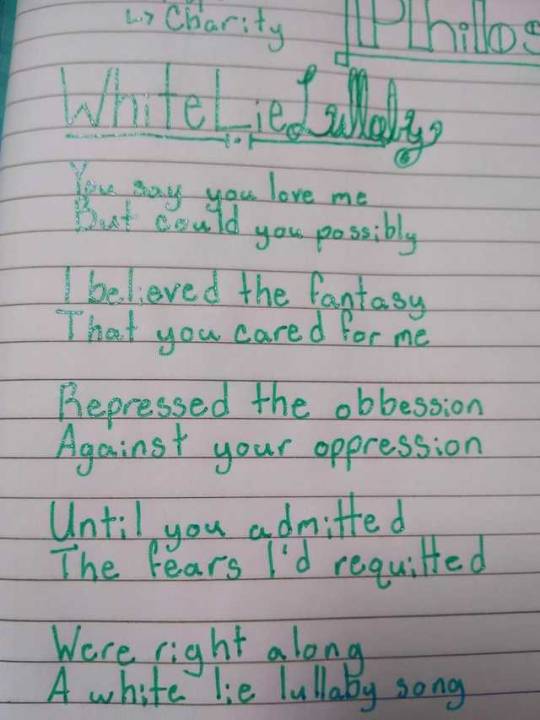 ↳ Charity
Philos
White Lie Lullaby
You say you love me
But could you possibly
I believed the fantasy
That you cared for me
Repressed the obbession
Against your oppression
Until you admitted
The fears I'd requitted
Were right along
A white lie lullaby song